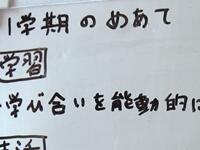 1学期のめあて
学習
学び合いを能動的に
生活